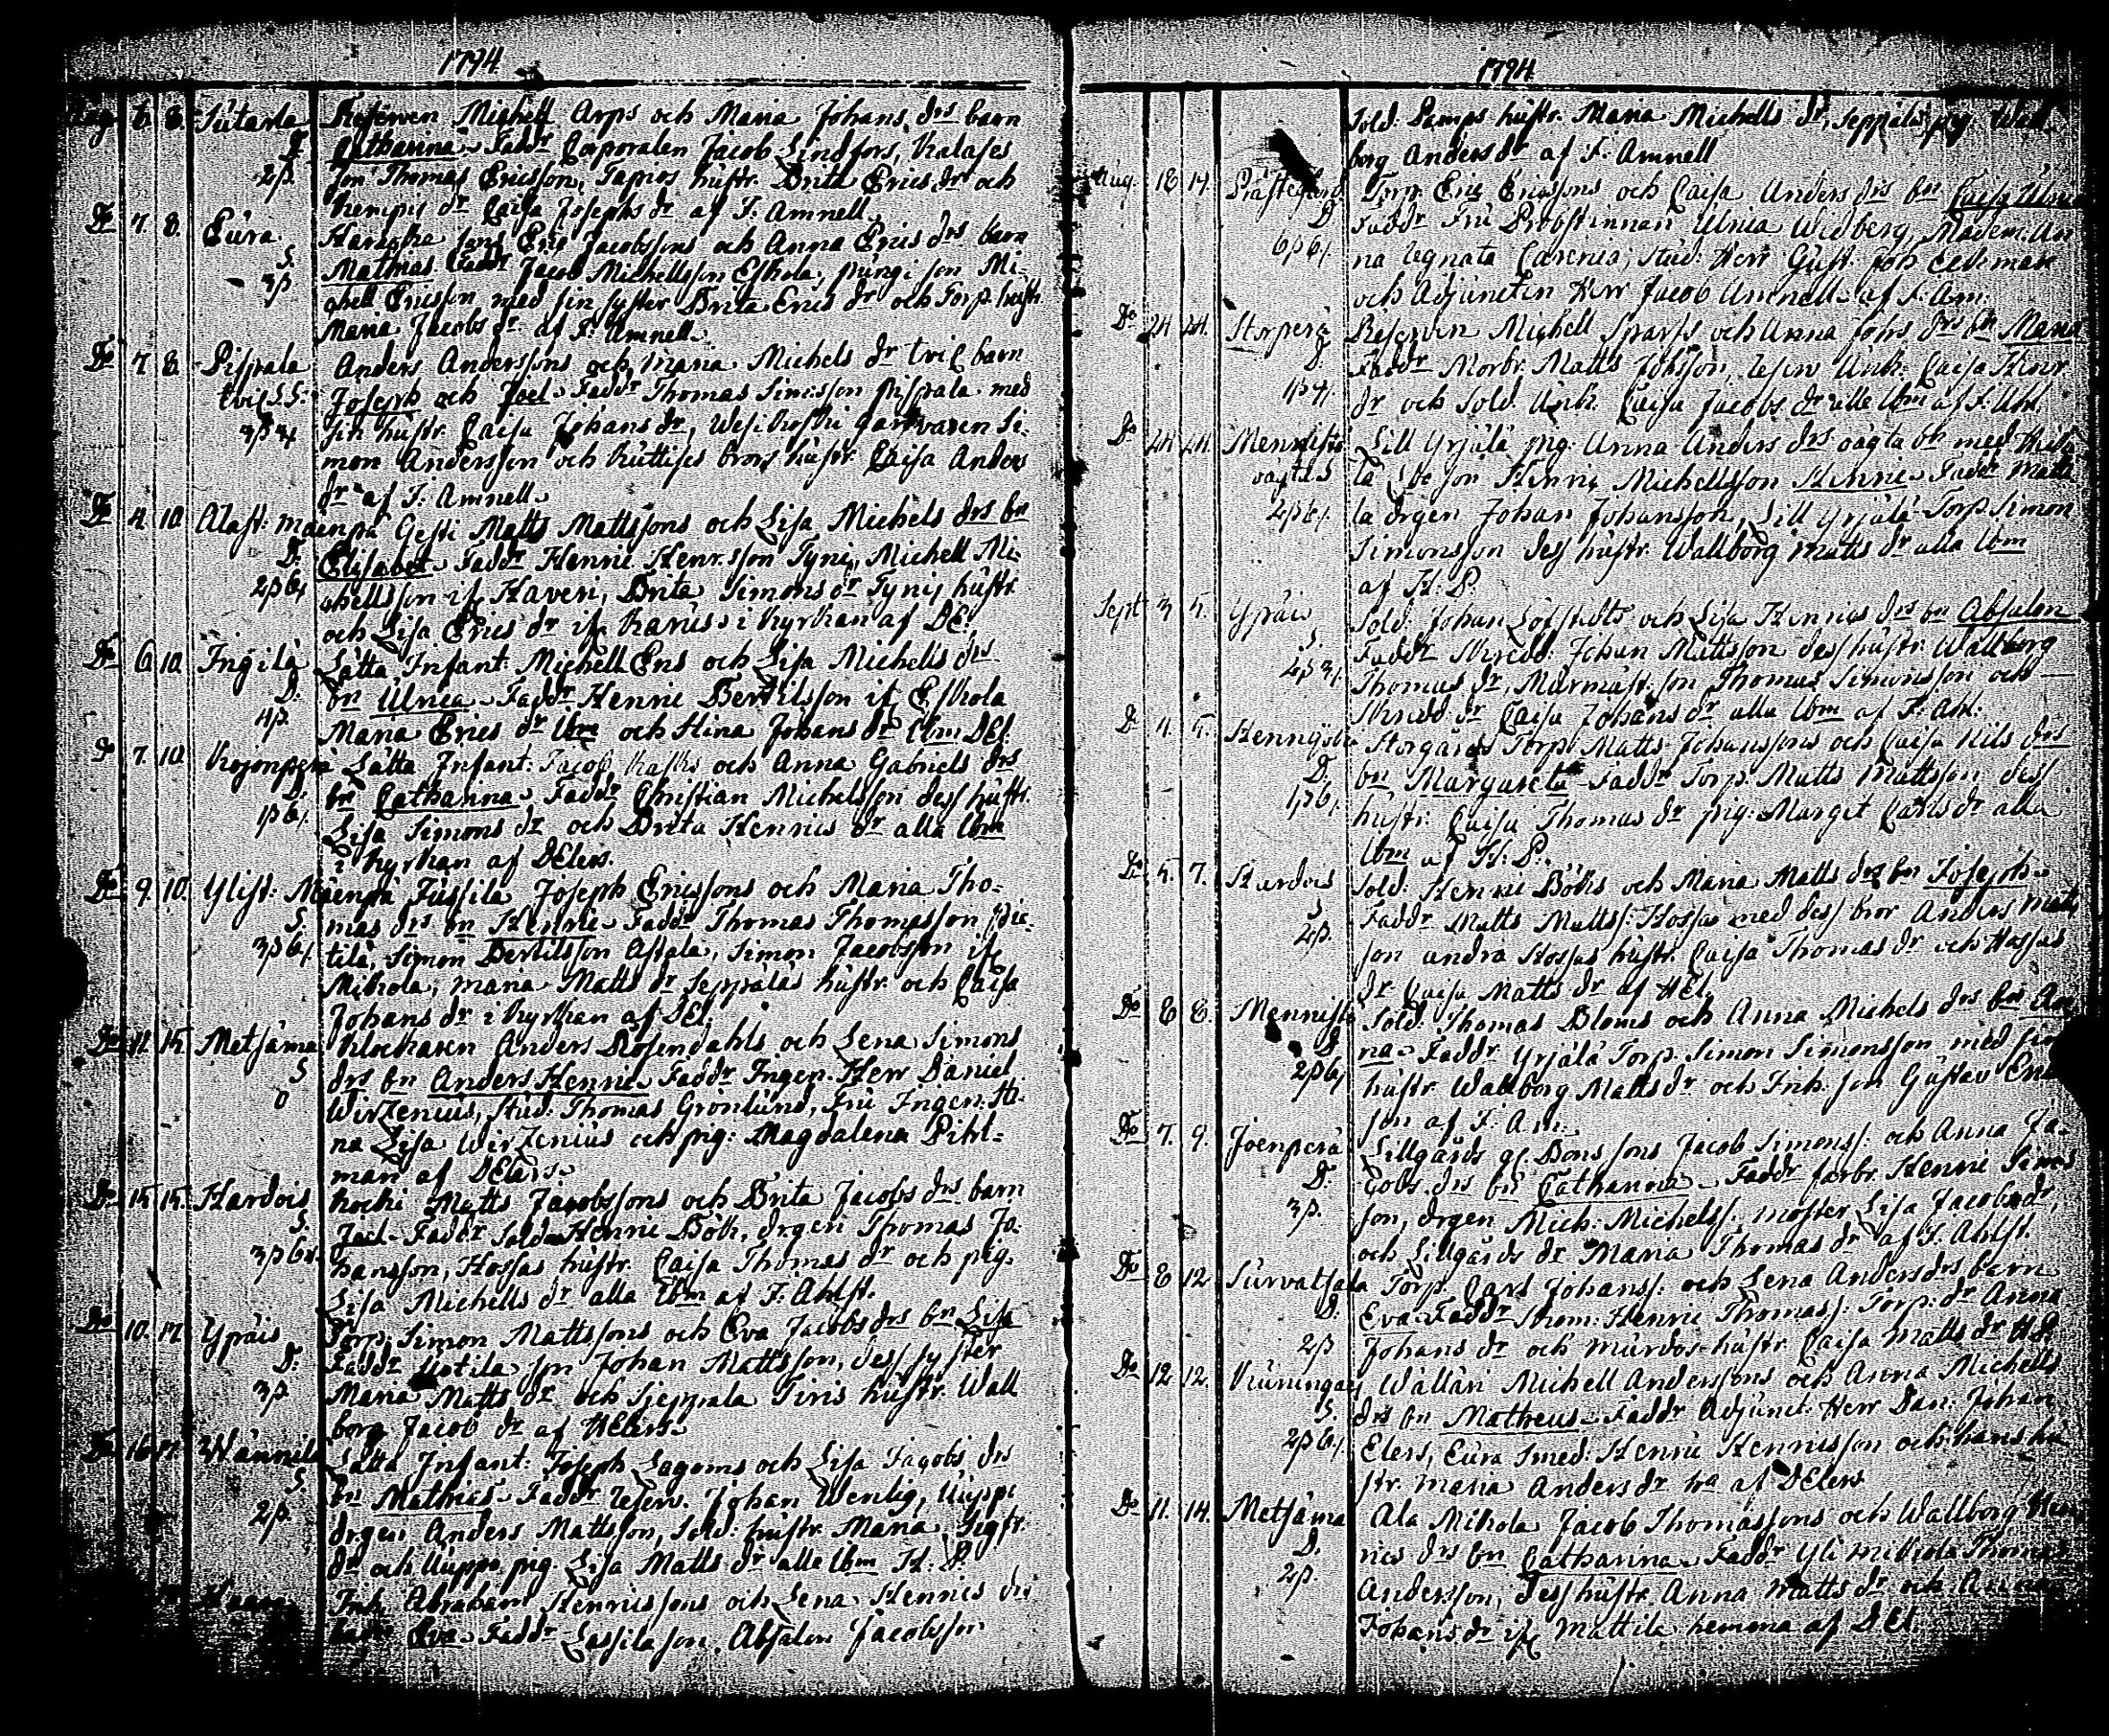 1794.
Aug. 6. 8. Sutarla Reserven Michell Arps och Maria Johans drs barn
D. Catharina. Faddr Corporalen Jacob Lindfors, Kalases
2β. son Thomas Ericsson, Tapios hustr. Brita Erics dr och
Kempis dr Caisa Josephs dr af J. Amnell.
Do 7. 8. Eura Eric Jacobssons och Anna Erics drs barn
S. Mathias. Faddr Jacob Michellsson Eskola, pungi son Mi-
3β chell Ericsson med sin syster Brita Erics dr och Torp. hustr.
Maria Jacobs dr. af J. Amnell.
Do 7. 8. Pispala Anders Anderssons och Maria Michels dr tvil. barn
tvil. S.S. Joseph och Joel. Faddr Thomas Simosson Pispala med
sin hustr. Caisa Johans dr, garfvaren Si-
mon Andersson och Kuttises brors hustr. Caisa Anders
dr af J. Amnell.
Do 4. 10. Alast: Mäenpä Gesti Matts Mattssons och Lisa Michels drs bn
D. Elisabet. Faddr Henric Henr.sson Tynis, Michell Mi-
2β6 chellsson if. Kaveri, Brita Simons dr Tynis hustr.
och Lisa Erics dr if. Karus. i Kyrkan af DE:
Do 6. 10. Ingilä Lätta Infant: Michell Ens och Lisa Michells drs
D. bn Ulrica. Faddr Henric Bertilsson if. Eskola
4β. Maria Erics dr ibm och Stina Johans dr ibm DEl.
Do 7. 10. Kojonperä Lätta Infant: Jacob Kasks och Anna Gabriels drs
D. bn Catharina. Faddr Christian Michelsson dess hustr.
1β6. Lisa Simons dr och Brita Henrics dr alla ibm
i Kyrkan af DElers.
Do 9. 10. Ylist: Mäenpä Jussila Joseph Ericssons och Maria Tho-
S. mas drs bn Henric. Faddr Thomas Thomasson Pie-
3β6. tilä, Simon Bertilsson Astala, Simon Jacobsson if.
Mikola, Maria Matts dr Seppäläs hustr. och Caisa
Johans dr i Kyrkan af DEl.
Do 11. 15. Metsäma Klockaren Anders Rosendahls och Lena Simons
S drs bn Anders Henric. Faddr Ingen. Herr Daniel
0 Wirzenius, Stud. Thomas Grönlund, Fru Ingen. St-
na Lisa Wirzenius och pig: Magdalena Pihl-
man af DElers.
Do 15. 15. Hardois Kocki Matts Jacobssons och Brita Jacobs drs barn
S. Joel. Faddr Sold. Henric Böök, drgen Thomas Jo-
3β6. hansson, Hossas hustr. Caisa Thomas dr och pig.
Lisa Michells dr alla ibm af J. Ahlst.
Do 10. 17. Ypäis Torp. Simon Mattssons och Eva Jacobs drs bn Lisa
D. Faddr Uotila son Johan Mattsson, dess syster
3β. Maria Matts dr och Sjeppala Tiris hustr. Wall
borg Jacob dr af HElers.
Do 16. 17. Hännilä Lätta Infant: Joseph Lagoms och Lisa Jacobs drs
S. bn Mathias. Faddr Reserv. Johan Wenlig, Uuppe
2β. drgen Anders Mattsson, Sold: hustr. Maria Sigfr.
dr och Uuppe pig. Lisa Matts dr alla ibm H. P.
Inh. Abraham Henricssons och Lena Henrics drs
barn Eva. Faddr Lassila son Absalon Jacobsson
1794.
Sold. Lamps hustr. Maria Michells dr, Seppälä pig. Wall-
borg Anders dr af J. Amnell
Aug. 18 19. Prästegård Torp. Eric Ericssons och Caisa Anders drs bn Caisa Ulrica
D. Faddr Fru Probstinnan Ulrica Widberg, Madem. An-
6β6. na Regnata Carenia, Stud: Herr Gust. Joh.
och Adjuncten Herr Jacob Amnell af J. Am:
Do 24 24. Storperä Reserven Michell Sparfs och Anna Johs. drs bn Maria
D. Faddr Morbr. Matts Johsson, Reserv Enk. Caisa Henr.
dr och Sold. Enk. Caisa Jacobs dr alla ibm af J. Ahl.
Do 24. 24. Mennistö Lill Yrjälä pig. Anna Anders drs oägta bn med
oägta S son Henric Michellsson Henric. Faddr
2β6. drgen Johan Johansson, Lill Yrjälä Torp. Simon
Simonsson dess hustr. Wallborg Matts dr alla ibm
af H. P.
Sept 3 5. Ypäis Sold. Johan Löfstedts och Lisa Henrics drs bn Absalon
S. Faddr Skredd. Johan Mattsson dess hustr. Wallborg
Thomas dr, Murmäst. son Thomas Simonsson och
Skredd. dr Caisa Johans dr alla ibm af J. Ahl.
D. 4. 5. Hennijoki Storgårds Torp. Matts Johanssons och Caisa Nils drs
D. bn Margareta Faddr Torp. Matts Mattsson dess
1β6. hustr. Caisa Thomas dr pig: Marget Carls dr alla
ibm af H. P.
Do 5. 7. Hardois Sold. Henric Böks och Maria Matts drs bn Joseph.
S Faddr Matts Matts: Hossas med dess bror Anders Matts
2β. son andra Hossas hustr. Caisa Thomas dr och Hossas
dr Caisa Matts dr af HEl.
Do 8 8. Mennistö Sold. Thomas Bloms och Anna Michels drs bn An-
D. na. Faddr Yrjälä Torp. Simon Simonsson med sin
2β6. hustr. Wallborg Matts dr och Inh. son Gustav Erics
son af J. Am.
Do 7. 9. Joenperä Lillgårds Sons Jacob Simonss: och Anna Ja-
D. cobs drs bn Catharina. Faddr farbr. Henric Simos
3β. son, drgen Mich: Michelss: moster Lisa Jacobs dr,
och Lillgårds dr Maria Thomas dr af J. Ahlst.
Do 8 12. Survatsala Torp. Carl Johanss: och Lena Anders drs barn
D. Eva. Faddr Henric Thomass: Torp: dr Anna
2β Johans dr och murdos hustr. Caisa Matts dr HP.
Do 12 12. Kiuningas, Wällän Michell Anderssons och Anna Michells
S. drs bn Matheus. Faddr Adjunct. Herr Dan. Johan
2β6. Elers, Eura Smed. Henric Henricsson och hans hu-
str. Maria Anders dr af DElers
Do 11. 14. Metsäma Ala Mikola Jacob Thomassons och Wallborg Hen-
D. rics drs bn Catharina. Faddr Yli Mikkola Thomas
2β. Andersson, dess hustr. Anna Matts dr och Anna
Johans dr if. Mattila hemma af DEl.